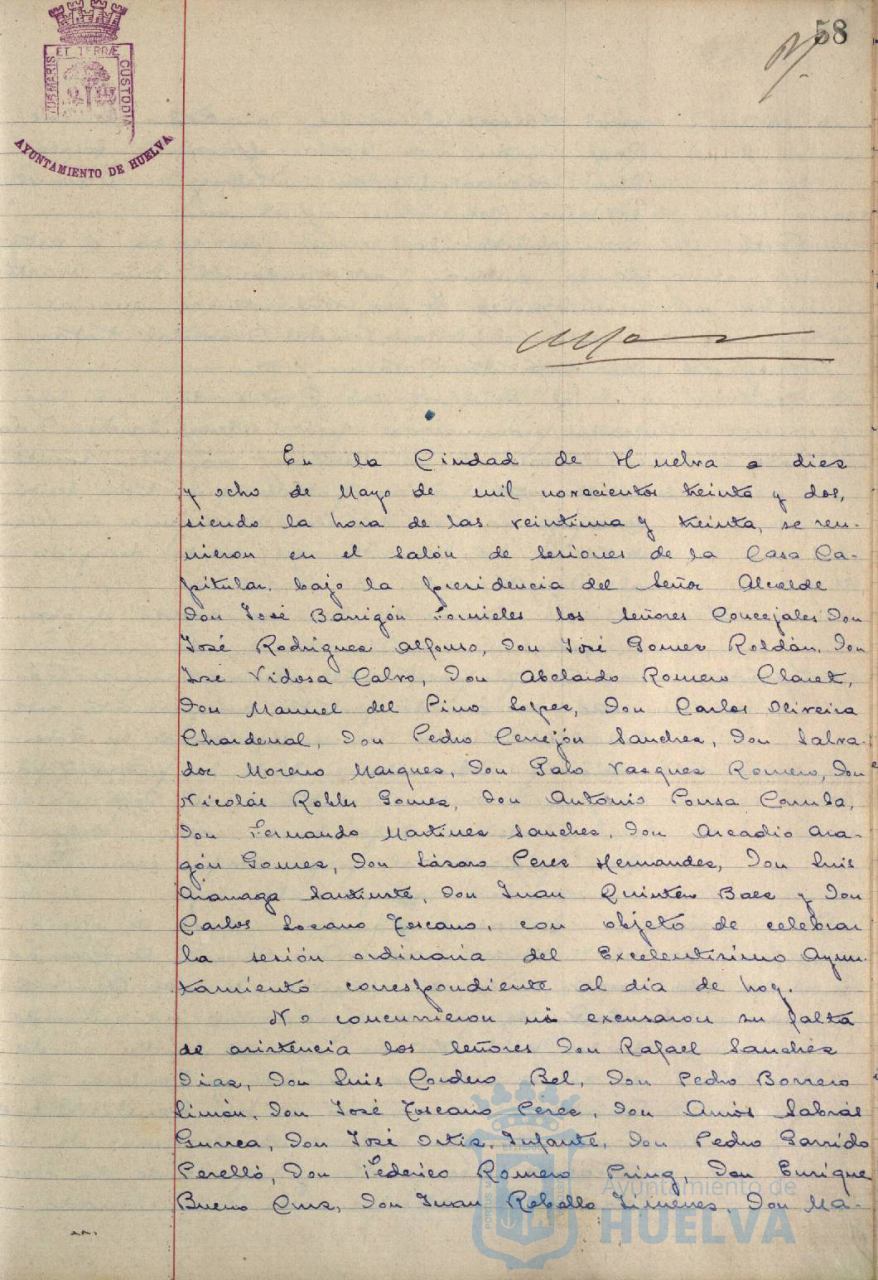 58
ET TERRÆ
CUSTODIA
MARIS
AYUNTAMIENTO DE HUELVA
En la Ciudad de Huelva a diez
y ocho de Mayo de mil novecientos treinta y dos,
siendo la hora de las veintiuna y treinta, se reu-
nieron en el salón de sesiones de la Casa Ca-
pitular, bajo la presidencia del Señor Alcalde
Don José Barrigón Fornieles los señores Concejales Don
José Rodriguez Alfonso, Don José Gomez Roldán, Don
José Vidosa Calvo, Don Abelardo Romero Claret,
Don Manuel del Pino Lopez, Don Carlos Oliveira
Chardenal, Don Pedro Cerrejón Sanchez, Don Salva-
dor Moreno Marquez, Don Palo Vasquez Romero, Don
Nicolás Robles Gomez, Don Antonio Pousa Camba,
Don Fernando Martinez Sanchez, Don Arcadio Ara-
gón Gomez, Don Lázaro Perez Hernandez, Don Luis
Aramaga Santiuste, Don Juan Quintero Baez y Don
Carlos Locano Toscano, con objeto de celebrar
la sesión ordinaria del Excelentísimo Ayun-
tamiento correspondiente al dia de hoy.
No concurrieron ni excusaron su falta
de asistencia los señores Don Rafael Sanchez
Diaz, Don Luis Cordero Bel, Don Pedro Borrero
Limón, Don José Toscano Perez, Don Amós Sabrás
Gurrea, Don José Ortiz Infante, Don Pedro Garrido
Perelló, Don Federico Romero Pring, Don Enrique
Bueno Cruz, Don Juan Rebollo Jiménes, Don Ma-
Ayuntamiento de
HUELVA